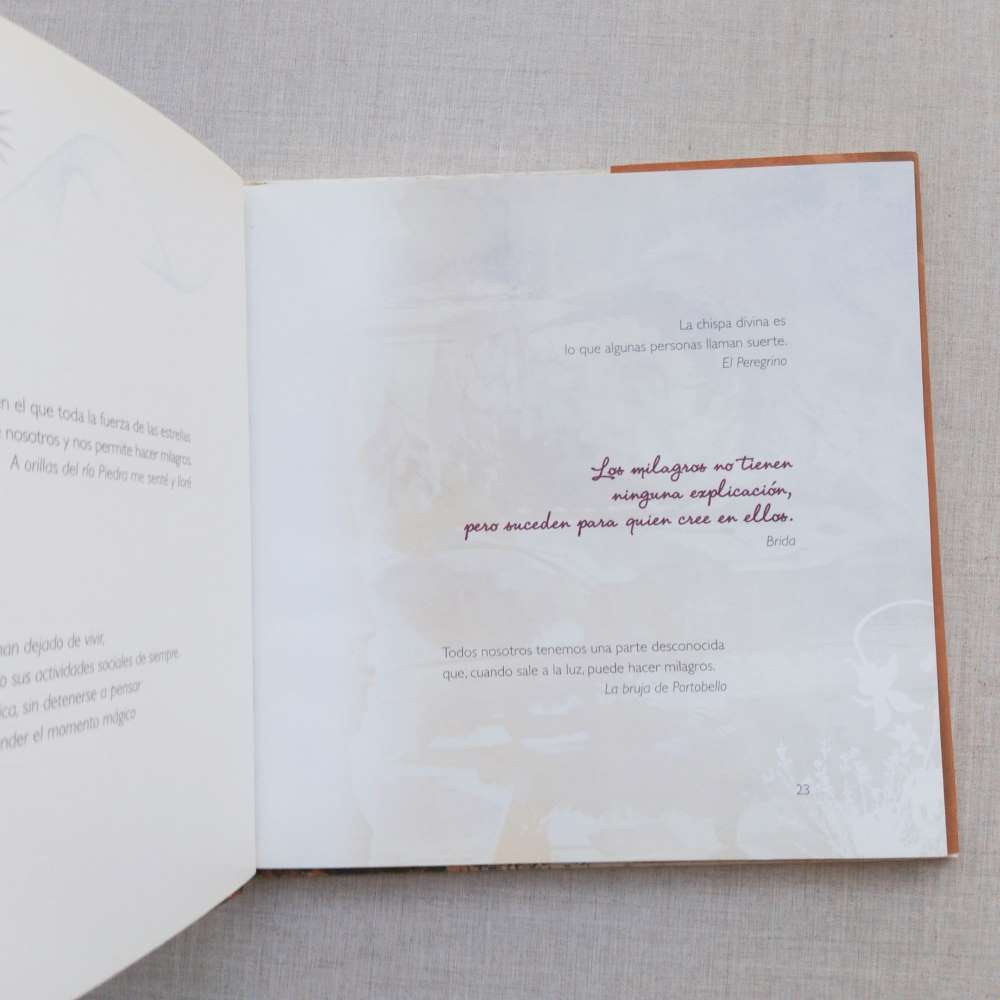 en el que toda la fuerza de las estrellas
nosotros y nos permite hacer milagros.
A orillas del río Piedra me senté y lloré
han dejado de vivir,
sus actividades sociales de siempre.
sin detenerse a pensar
el momento mágico
La chispa divina es
lo que algunas personas llaman suerte.
El Peregrino
Los milagros no tienen
ninguna explicación,
pero suceden para quien cree en ellos.
Brida
Todos nosotros tenemos una parte desconocida
que, cuando sale a la luz, puede hacer milagros.
La bruja de Portobello
23